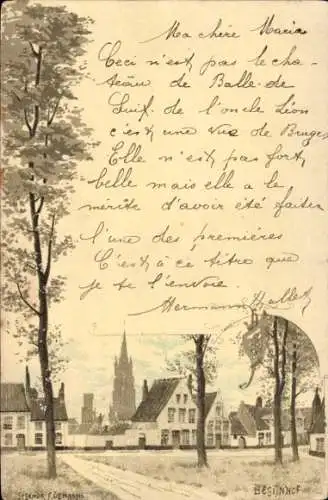 Ma chère Maria
Ceci n'est pas le cha-
teau de Balle-de
Suif de l'oncle Léon
c'est une vue de Bruges
Elle n'est pas fort
belle mais elle a le
mérite d'avoir été faite
l'une des premières
C'est à ce titre que
je te l'envoie.
Hermann
BEGIJNHOF